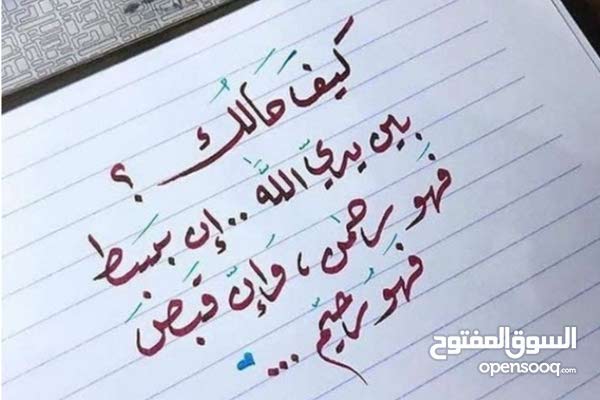 كَيفَ حَالُكَ ؟
بين يديّ اللَّه .. إن بسَط
فَهو رحمن ، وَإنّ قبَضَ
فَهُو رَحيّم ...
السوق المفتوح
opensooq.com